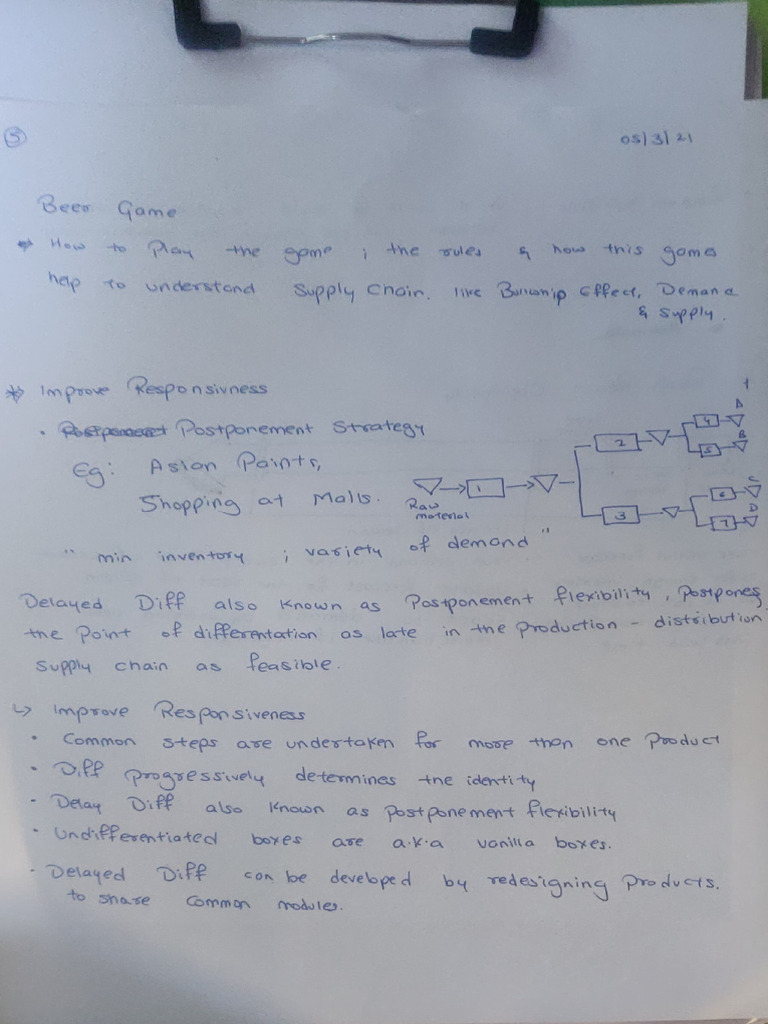 5
05/3/21
Beer Game
How to Play the game ; the rules & how this game
help to understand Supply Chain. like Bullwhip Effect, Demand
& Supply.
* Improve Responsivness
• Postponement Postponement Strategy
Eg: Asian Paints,
Shopping at Malls.
Raw
material
1
2
3
4
5
6
7
A
B
C
D
" min inventory ; variety of demand "
Delayed Diff also known as Postponement flexibility, Postpones
the Point of differentation as late in the production - distribution
supply chain as feasible.
↳ Improve Responsiveness
• Common steps are undertaken for more than one Product
• Diff progressively determines the identity
• Delay Diff also known as postponement flexibility
• Undifferentiated boxes are a.k.a vanilla boxes.
• Delayed Diff can be developed by redesigning Products.
to share common modules.